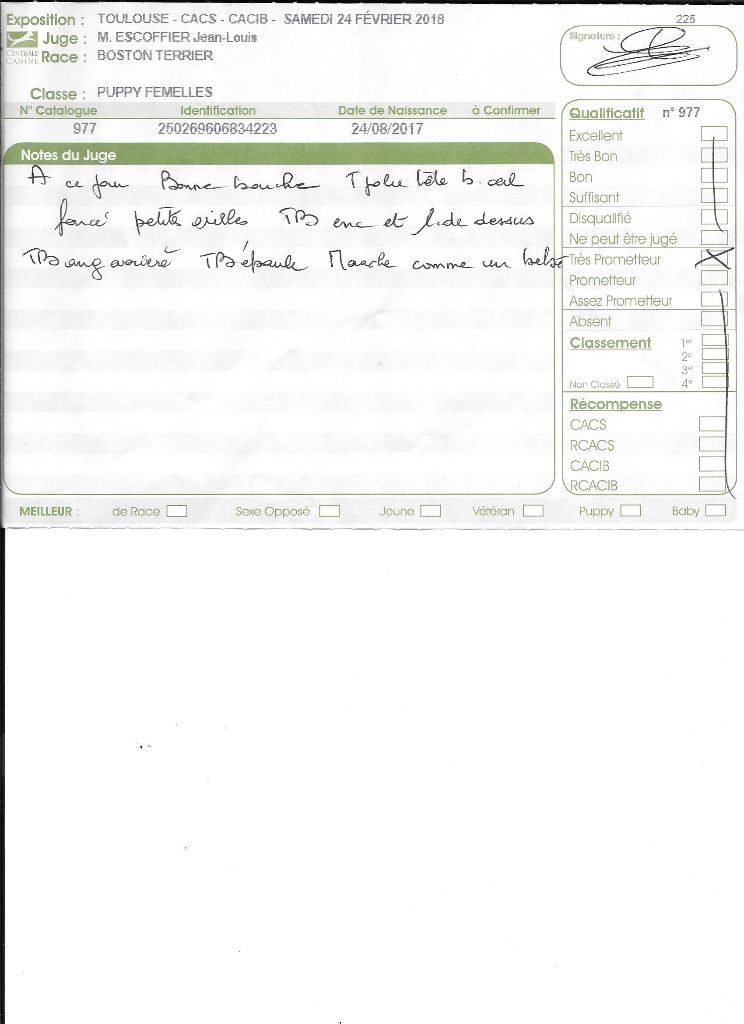 Exposition : TOULOUSE - CACS - CACIB - SAMEDI 24 FÉVRIER 2018
225
CENTRALE CANINE
Juge : M. ESCOFFIER Jean-Louis
Race : BOSTON TERRIER
Signature :
Classe : PUPPY FEMELLES
N° Catalogue Identification Date de Naissance à Confirmer
977 250269606834223 24/08/2017
Notes du Juge
A ce jour Bonne bouche T jolie tête b. oeil
foncé petite oreilles TB enc et l. de dessus
TB ang arrière TB épaule Marche comme un
Qualificatif n° 977
Excellent
Très Bon
Bon
Suffisant
Disqualifié
Ne peut être jugé
Très Prometteur X
Prometteur
Assez Prometteur
Absent
Classement 1er
2e
3e
Non Classé 4e
Récompense
CACS
RCACS
CACIB
RCACIB
MEILLEUR : de Race Sexe Opposé Jeune Vétéran Puppy Baby